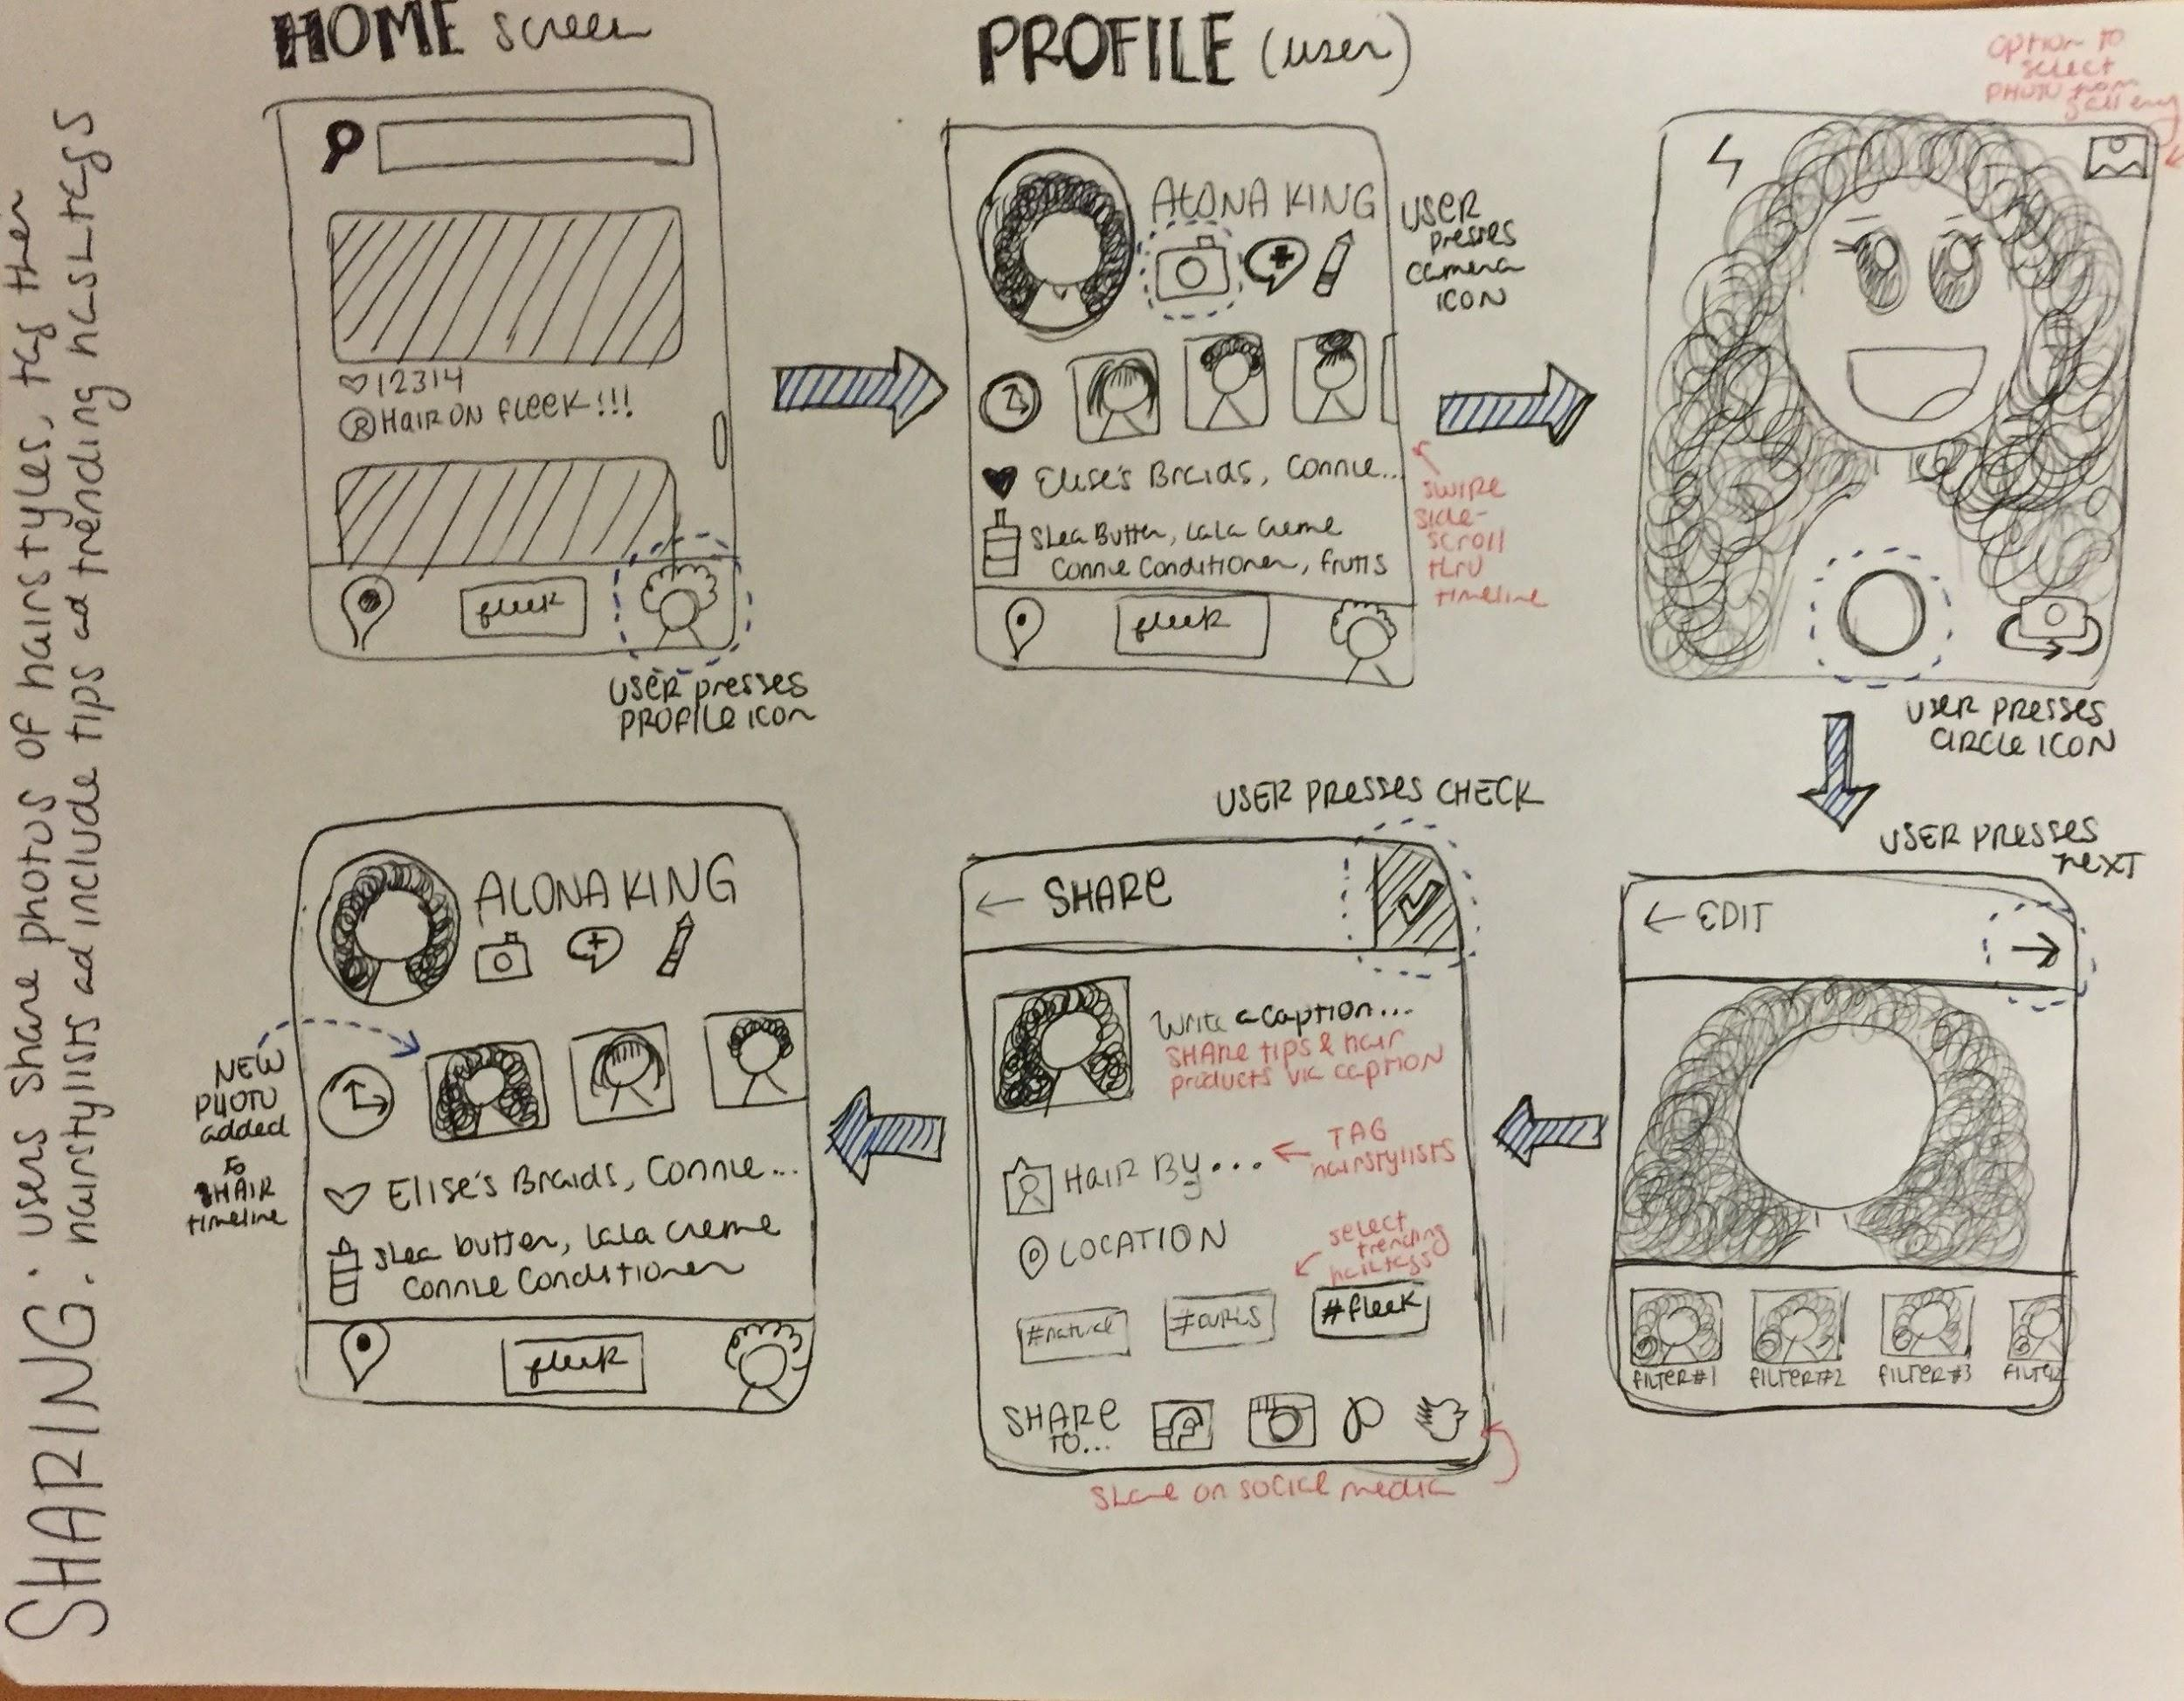 SHARING: users share photos of hairstyles, tag their
hairstylists ad include tips ad trending hashtags
HOME screen
♡12314
HAIR ON FLEEK!!!
fleek
USER presses
PROFILE ICON
PROFILE (user)
ALONA KING
Elise's Braids, Connie...
Shea Butter, LaLa Creme
Connie Conditioner, Frutis
fleek
USER
presses
camera
ICON
swipe
side-
scroll
thru
timeline
option to
select
PHOTO from
gallery
USER PRESSES
CIRCLE ICON
USER PRESSES
NEXT
← EDIT
→
FILTER#1
FILTER#2
FILTER#3
FILTER
USER PRESSES CHECK
← SHARE
Write a caption...
SHARE TIPS & hair
products via caption
HAIR BY...
TAG
hairstylists
LOCATION
select
trending
hashtags
#natural
#curls
#fleek
SHARE
TO...
Share on social media
ALONA KING
NEW
PHOTO
added
to
HAIR
timeline
Elise's Braids, Connie...
Shea butter, LaLa Creme
Connie Conditioner
fleek